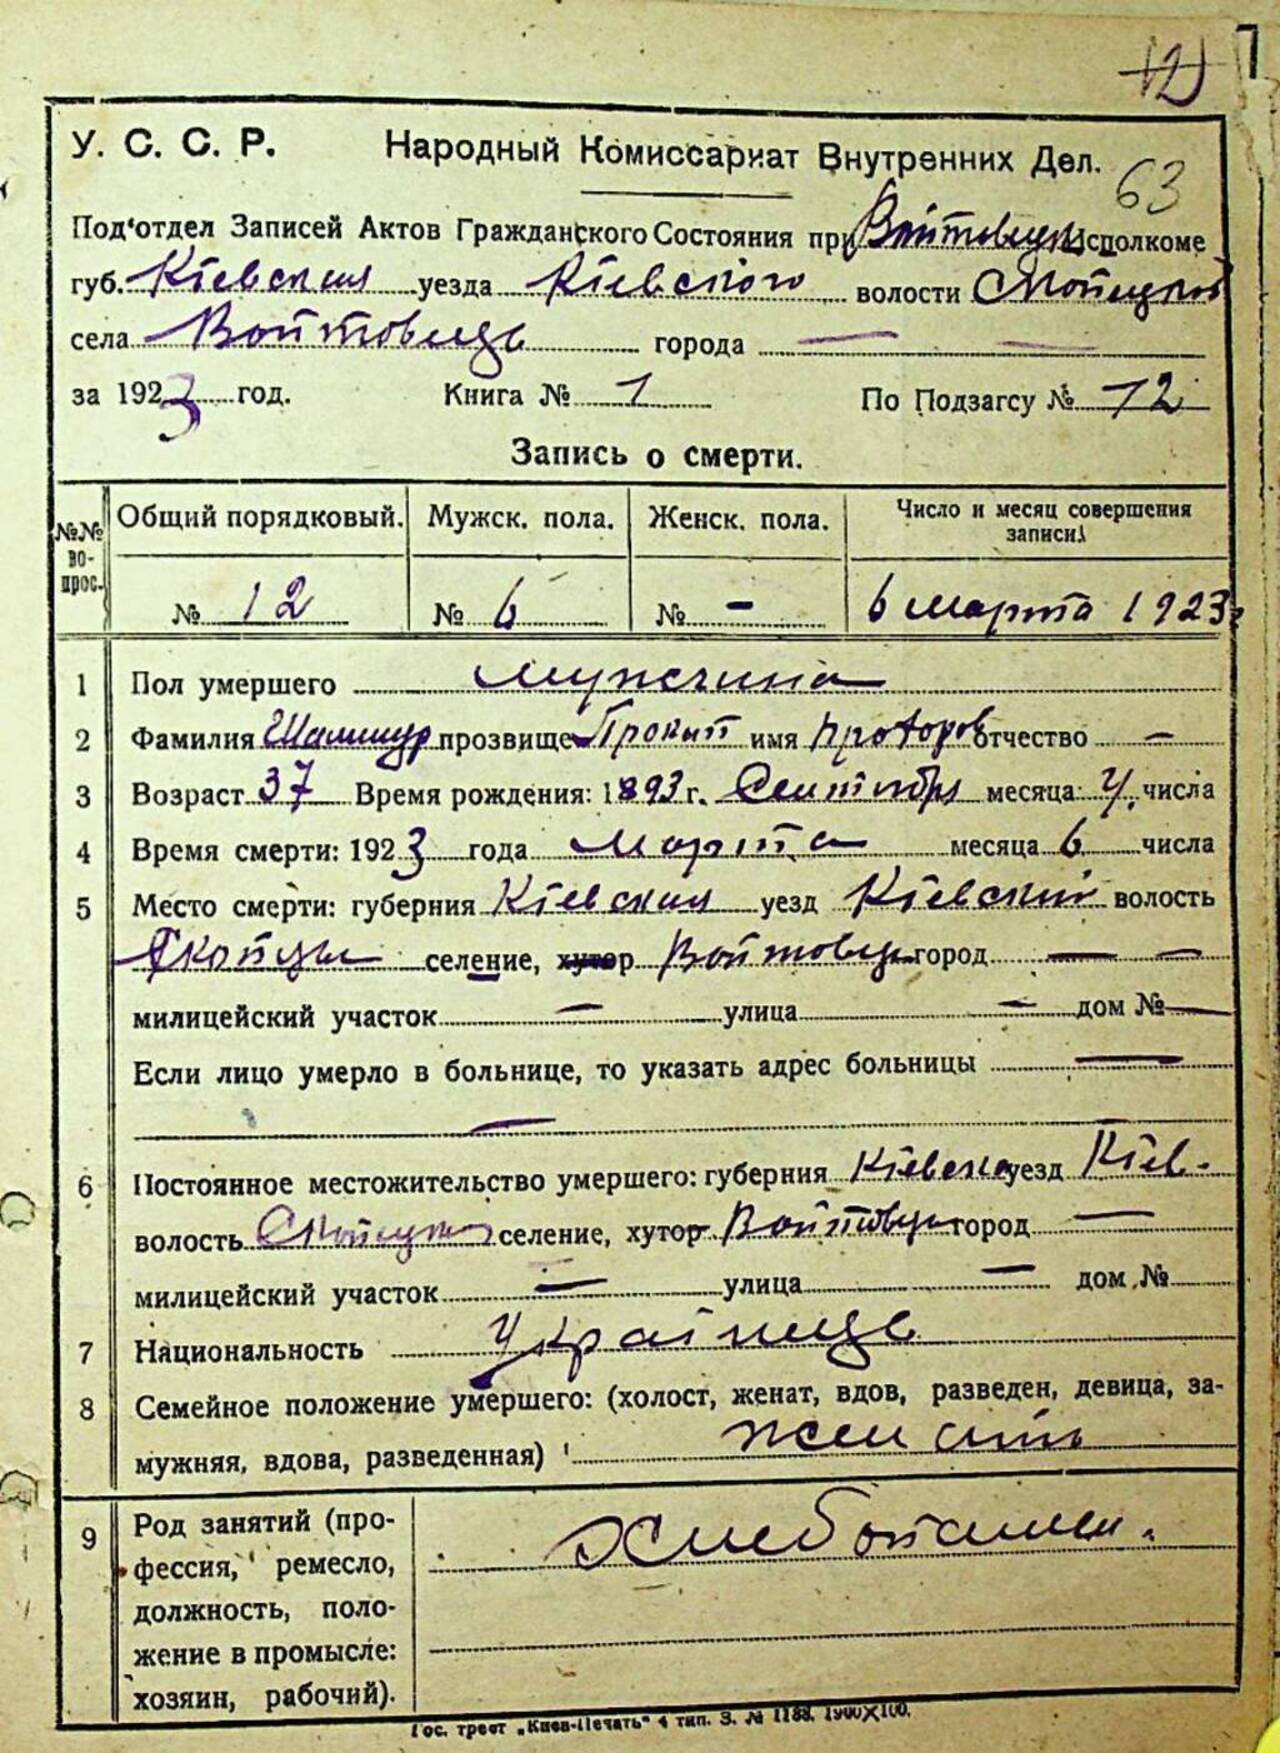 12
63
У. С. С. Р. Народный Комиссариат Внутренних Дел.
Под'отдел Записей Актов Гражданского Состояния при Войтовецк Исполкоме
губ. Кіевския уезда Кіевского волости
села Войтовець города —
за 1923 год. Книга № 1 По Подзагсу № 12
Запись о смерти.
№№ во-прос. Общий порядковый. Мужск. пола. Женск. пола. Число и месяц совершения записи.
№ 12 № 6 № - 6 марта 1923 г
1 Пол умершего мужчина
2 Фамилия прозвище Прокип имя отчество —
3 Возраст 37 Время рождения: 1893 г. Сентября месяца 4. числа
4 Время смерти: 1923 года марта месяца 6 числа
5 Место смерти: губерния Кіевския уезд Кіевский волость
селение, хутор Войтовцы город — —
милицейский участок — улица — дом № —
Если лицо умерло в больнице, то указать адрес больницы —
—
6 Постоянное местожительство умершего: губерния Кіевска уезд Кіев.
волость селение, хутор Войтовцы город —
милицейский участок — улица — дом №
7 Национальность Українець
8 Семейное положение умершего: (холост, женат, вдов, разведен, девица, за-
мужняя, вдова, разведенная)
9 Род занятий (про-
фессия, ремесло,
должность, поло-
жение в промысле:
хозяин, рабочий).
Гос. трест „Киев-Печать" 4 тип. З. № 1188. 1900X100.